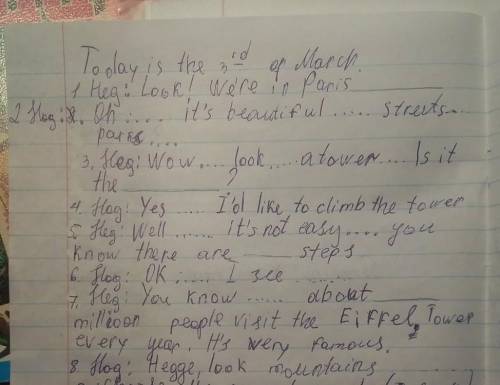 Today is the 3rd of March.
1 Heg: Look! We're in Paris ______
2 Hog: Oh .... it's beautiful .... streets..
parks ....
3. Heg: Wow .... look .... a tower .... Is it
the ______ ?
4. Hog: Yes .... I'd like to climb the tower
5. Heg: Well ..... it's not easy .... you
know there are ____ steps
6. Hog: OK .... I see .......
7. Heg: You know ..... about ____
million people visit the Eiffel Tower
every year. It's very famous.
8. Hog: Hegge, look mountains ......